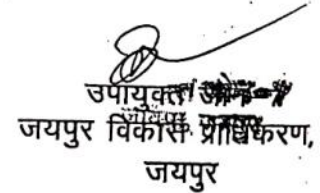 उपायुक्त जोन-7
जयपुर विकास प्राधिकरण,
जयपुर